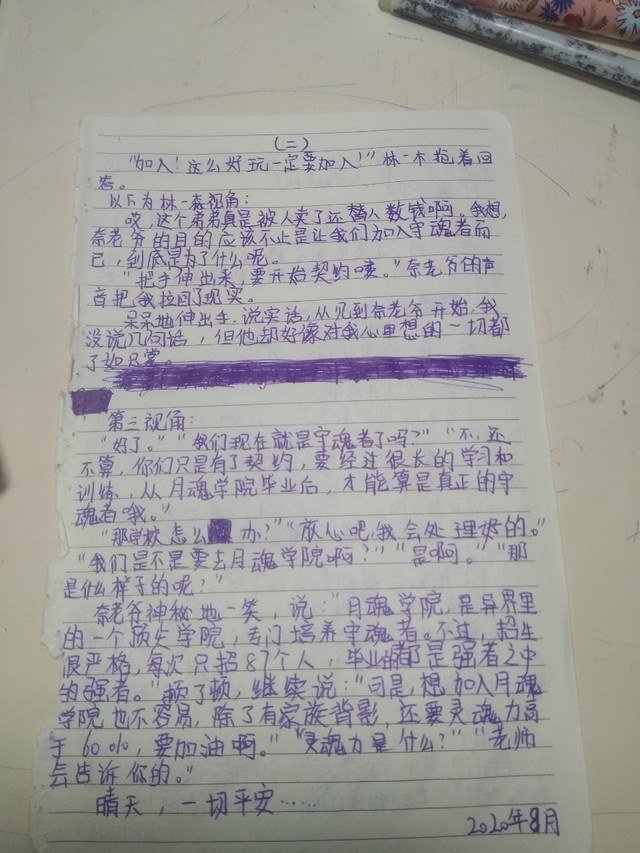 （二）
“加入！这么好玩一定要加入！”林一木抢着回
答。
以下为林一森视角：
哎，这个弟弟真是被人卖了还替人数钱啊。我想，
奈老爷的目的应该不止是让我们加入守魂者而
已，到底是为了什么呢。
“把手伸出来，要开始契约喽。”奈老爷的声
音把我拉回了现实。
呆呆地伸出手，说实话，从见到奈老爷开始，我
没说几句话，但他却好像对我心里想的一切都
了如只掌。
第三视角：
“好了。”“我们现在就是守魂者了吗？”“不，还
不算，你们只是有了契约，要经过很长的学习和
训练，从月魂学院毕业后，才能算是真正的守
魂者哦。”
“那学校怎么办？”“放心吧，我会处理好的。”
“我们是不是要去月魂学院啊？”“是啊。”“那
是什么样子的呢？”
奈老爷神秘地一笑，说：“月魂学院，是异界里
的一个顶尖学院，专门培养守魂者。不过，招生
很严格，每次只招87个人，毕业的都是强者之中
的强者。”顿了顿，继续说：“可是，想加入月魂
学院也不容易，除了有家族背影，还要灵魂力高
于60%，要加油啊。”“灵魂力是什么？”“老师
会告诉你的。”
晴天，一切平安……
2020年8月